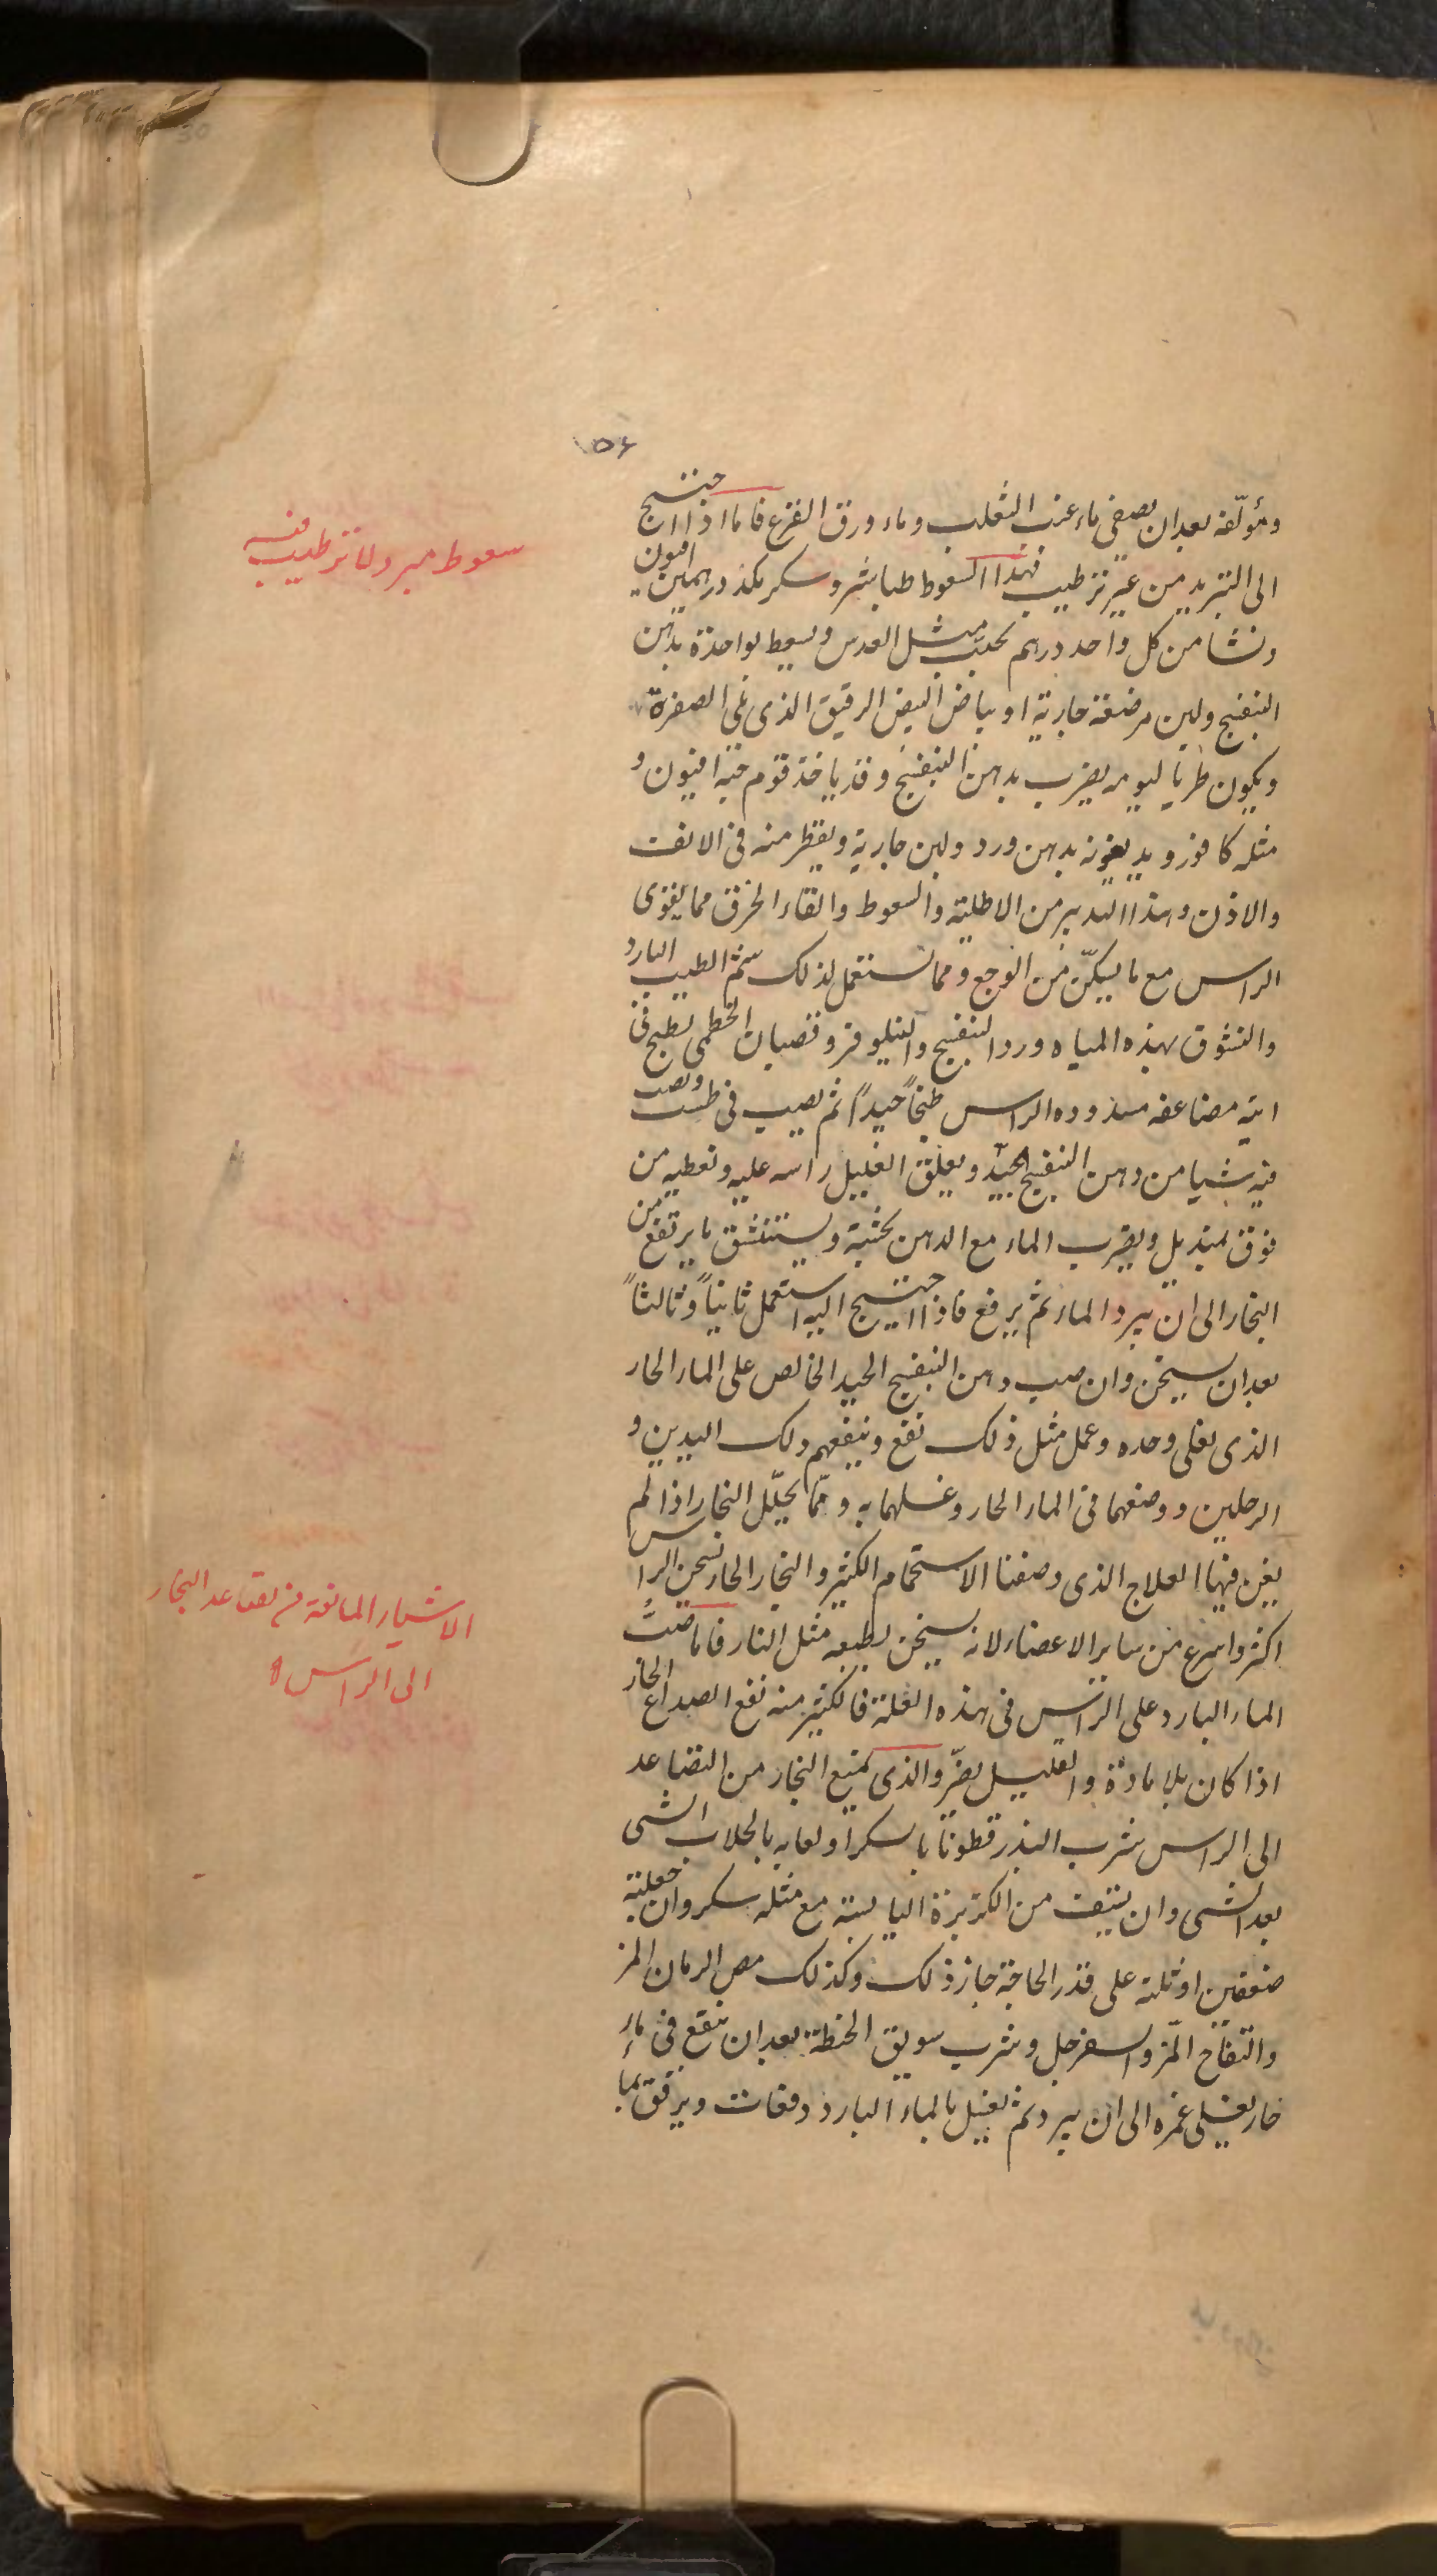 ۱۵۶
ومؤلفة بعد ان يصفى ماء عنب الثعلب وماء ورق القرع فاما اذا احتيج
الى التبريد من غير ترطيب فهذا السعوط طباشير وسكر يكذ درهمين افيون
ونشا من كل واحد درهم يحبب مثل العدس ويسعط بواحدة بدهن
البنفسج ولبن مرضعة جارية او بياض البيض الرقيق الذى يلى الصفرة
ويكون طريا ليومه يضرب بدهن البنفسج وقد ياخذ قوم حبة افيون و
مثله كافور ويديفونه بدهن ورد ولبن جارية ويقطر منه فى الانف
والاذن وهذا التدبير من الاطلية والسعوط والقاء الخرق مما يقوى
الراس مع ما يسكن من الوجع ومما تستعمل لذلك شم الطيب البارد
والنشوق بهذه المياه ورد البنفسج والنيلوفر وقضبان الخطمى يطبخ فى
انية مضاعفه مسدوده الراس طبخاً جيداً ثم يصب فى طست ويصب
فيه شيا من دهن البنفسج الجيد ويعلق العليل راسه عليه وتعطيه من
فوق بمنديل ويضرب الماء مع الدهن بخشبة ويستنشق ما يرتفع من
البخار الى ان يبرد الماء ثم يرفع فاذا احتيج اليه استعمل ثانياً وثالثاً
بعد ان يسخن وان صب دهن البنفسج الجيد الخالص على الماء الحار
الذى يغلى وحده وعمل مثل ذلك نفع وينفعهم دلك اليدين و
الرجلين ووضعهما فى الماء الحار وغسلهما به ومما يحلل البخار اذا لم
يغن فيها العلاج الذى وصفنا الاستحمام الكثير والبخار الحار يسخن الراس
اكثر واسرع من ساير الاعضاء لانه يسخن بطبعه مثل النار فاما صبُّ
الماء البارد على الراس فى هذه العلة فالكثير منه نفع الصداع الحار
اذا كان بلا مادة والقليل يضر والذى يمنع البخار من التصاعد
الى الراس شرب البزر قطونا بالسكر او لعابه بالجلاب الشى
بعد الشى وان يستف من الكزبرة اليابسة مع مثله سكر وان جعلته
ضعفين او ثلثة على قدر الحاجة جاز ذلك وكذلك مص الرمان المز
والتفاح المز والسفرجل وشرب سويق الحنطة بعد ان ينقع فى ماء
حار يغلى غمره الى ان يبرد ثم يغسل بالماء البارد دفعات ويرقق بما
سعوط مبرد لا ترطيب فيه
الاشياء المانعة من تصاعد البخار
الى الراس